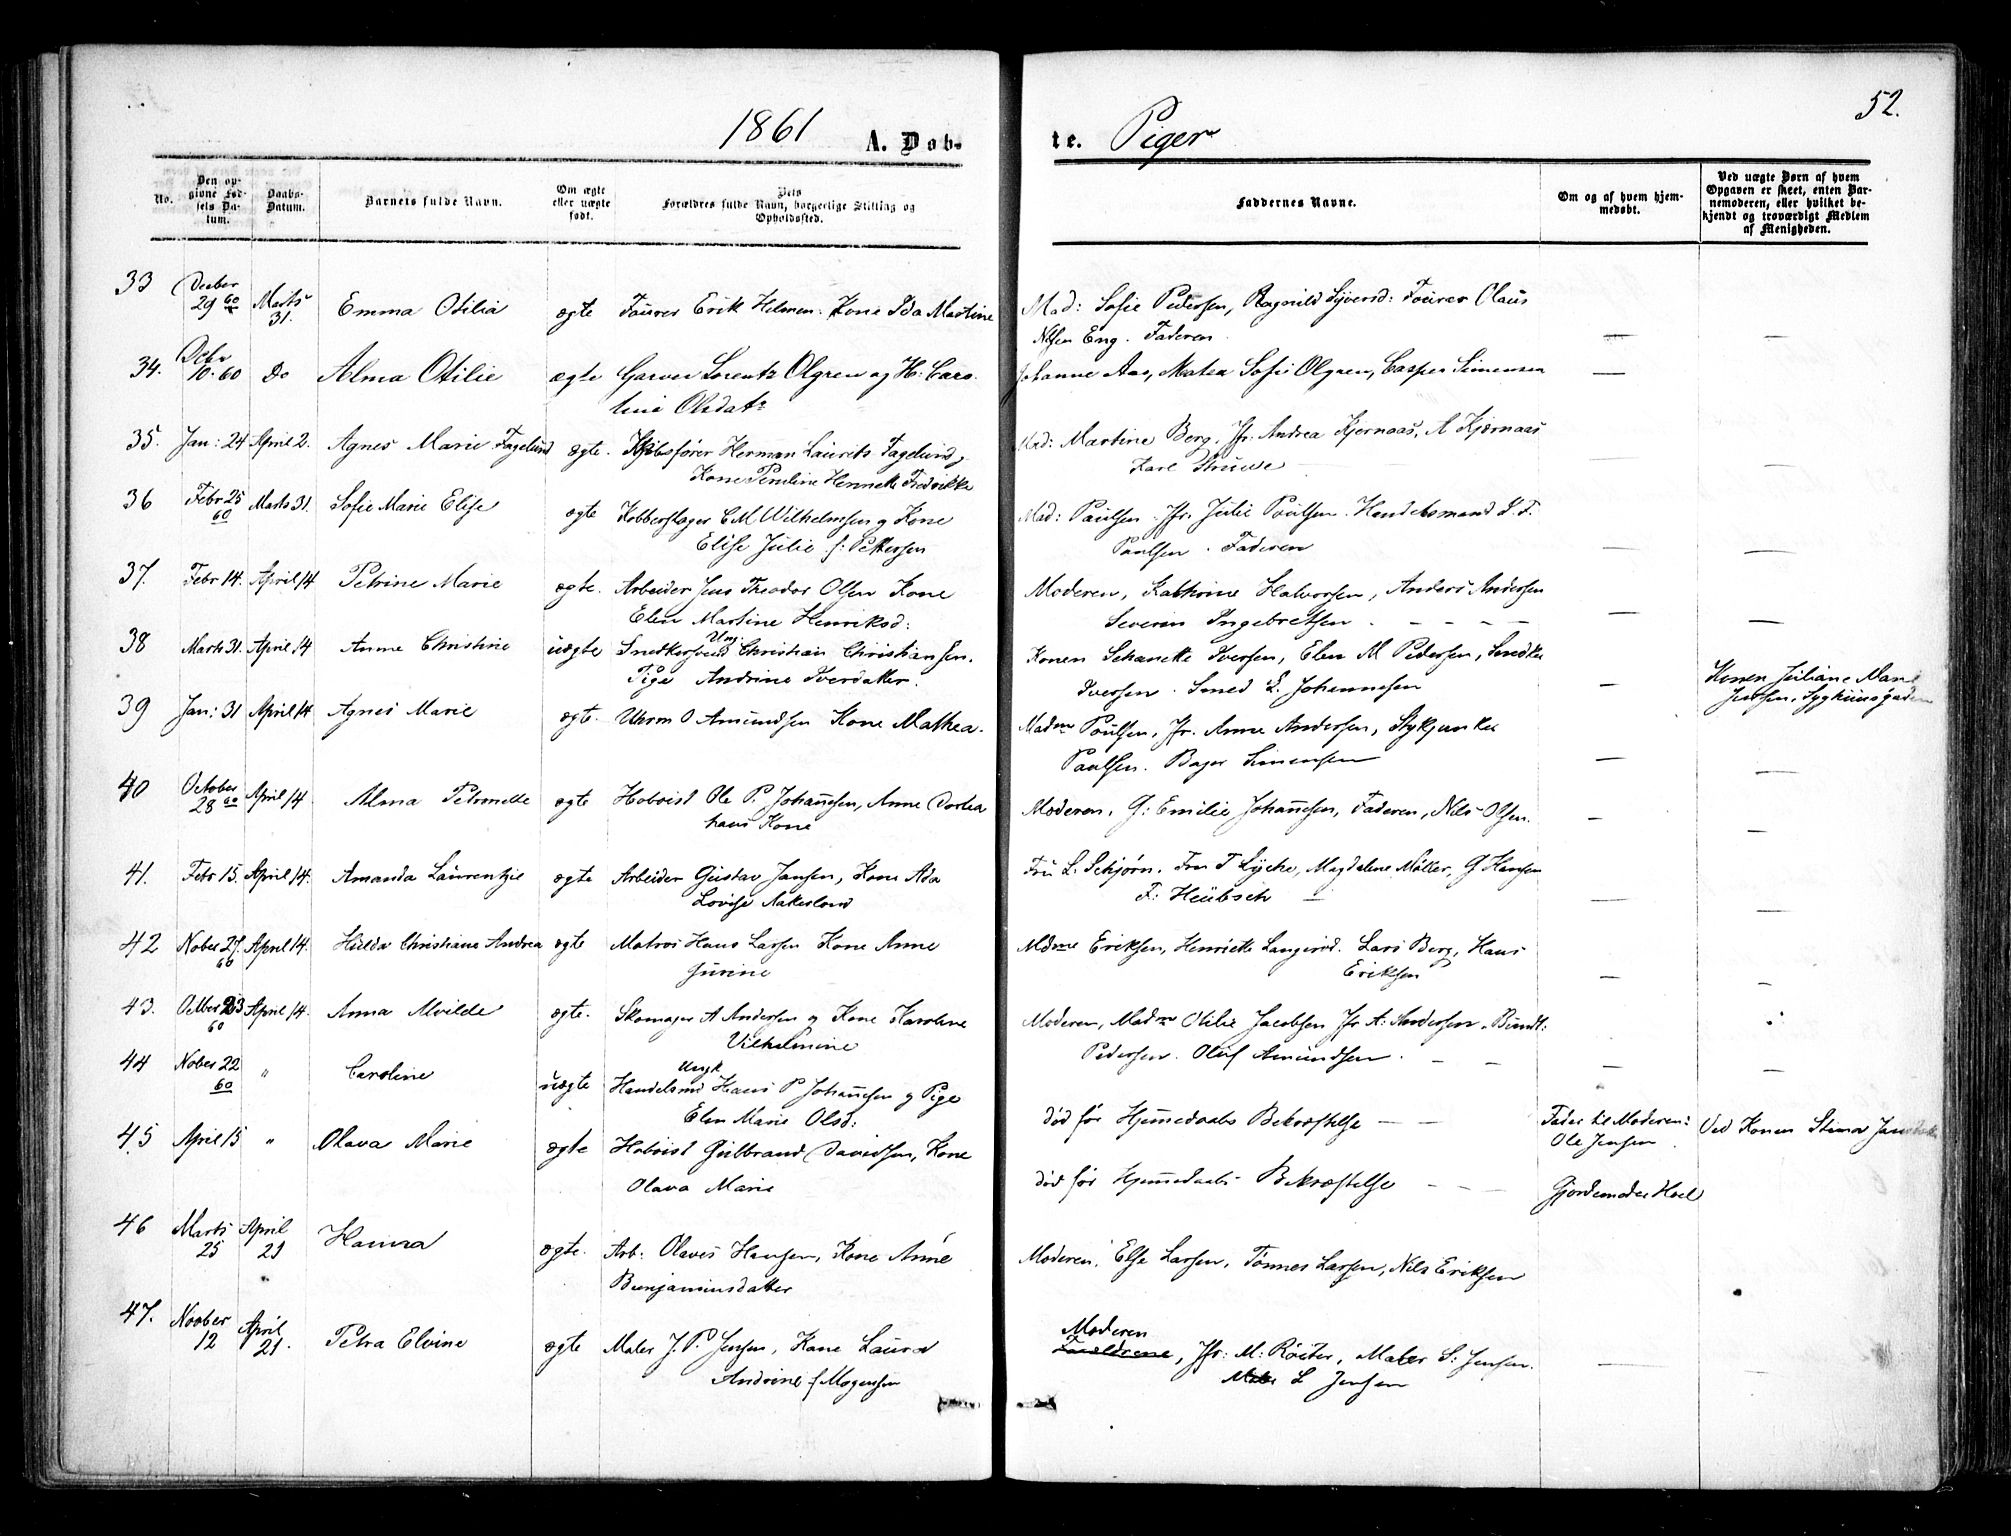 1861 A. Døb- te. Piger 52.
No. Den opgivne Fødsels Datum. Daabs-Datum. Barnets fulde Navn. Om ægte eller uægte født. Dets Forældres fulde Navn, borgerlige Stilling og Opholdssted. Faddernes Navne. Om og af hvem hjemmedøbt. Ved uægte Børn af hvem Opgaven er skeet, enten Barnemoderen, eller hvilket bekjendt og troværdigt Medlem af Menigheden.
33 Decber 29 60 Marts 31. Emma Otilia ægte Faurer Erik Helmen. Kone Ida Martine Mad: Sofie Pedersen, Ragnild Syversd: Fourer Olaus
Nilsen Eng. Faderen. —
34. Debr 10. 60 Do Alma Otilie ægte Garver Lorentz Olgren og H: Caro- Johanne Aas, Matea Sofie Olgren, Casper Simensen —
line Olsdatr
35. Jan: 24 April 2. Agnes Marie Fagelund ægte. Skibsfører Herman Laurits Fagelund, Mad: Martine Berg. Jfr. Andrea Kjernaas, A Kjærnaas
Kone Pauline Henriette Fredrikke Karl Struwe —
36 Febr 25 60 Marts 31. Sofie Marie Elise ægte Kobberslager C M Wilhelmsen og Kone Mad: Paulsen. Jfr. Julie Poulsen. Handelsmand
Elise Julie f: Pettersen Paulsen. Faderen —
37. Febr 14. April 14 Petrine Marie ægte. Arbeider Jens Theodor Olsen Kone Moderen, Kathrine Halvorsen, Anders Andersen
Elen Martine Henriksd: Severin Ingebretsen. —
38 Marts 31. April 14 Anne Christine uægte Snedkersvend Ung. Christian Christiansen. Konen Schanette Iversen, Elen M Pedersen, Snedker
Pige Andrine Sverdaker. Iversen. Smed L. Johannesen — Konen Juliane Marie
Jensen, Sygehuusgaden
39 Jan: 31 April 14 Agnes Marie ægte. Uhrm O Amundsen Kone Mathea. Madme Poulsen, Jfr. Anne Andersen, Stykjunker
Paulsen. Bager Simensen —
40 October 28 60 April 14 Alma Petronette ægte Hoboist Ole P. Johannesen, Anne Dorthea Moderen, G: Emilie Johannesen, Faderen, Nils Olsen. —
hans Kone
41. Febr 15. April 14. Amanda Laurentzie ægte Arbeider Gustav Jansen, Kone Ada Fru L. Schjørn. Fru T Lycke, Magdalene Møller, G Hansen
Lovise Aakerlund F: Heübsch —
42 Nober 27. 60 April 14. Hilda Christiane Andrea ægte Matros Hans Larsen Kone Anne Mdme Eriksen, Henriette Langerød. Lars Berg, Hans
Jurine Eriksen —
43. Octber 23 60 April 14. Anna Alvilde ægte. Skomager A Andersen og Kone Karoline Moderen, Madme Otilie Jacobsen Jfr A: Andersen. Bundt:
Vilhelmine Pedersen. Oluf Amundsen. —
44 Nober 22 60 " Caroline uægte Ungk Handelsmd Hans P Johannesen og Pige
Elen Marie Olsd: død før Hjemmedaabs Bekræftelse — Fader til Moderen: Ole Jensen Ved Konen Stina
45 April 15 " Olava Marie ægte Hoboist Gulbrand Davidsen, Kone
Olava Marie død før Hjemmedaabs Bekræftelse — Gjordemoder Hoel
46 Marts 25 April 21 Hanna ægte. Arb: Olaves Hansen, Kone Anne Moderen. Else Larsen, Tønnes Larsen, Nils Eriksen
Benjaminsdatter
47. Novber 12 April 21. Petra Elvine ægte Maler J. P. Jensen, Kone Laura Moderen Forældrene, Jfr: M: Røiter, Maler S: Jensen. —
Andrine f Mogensen Maler L Jensen